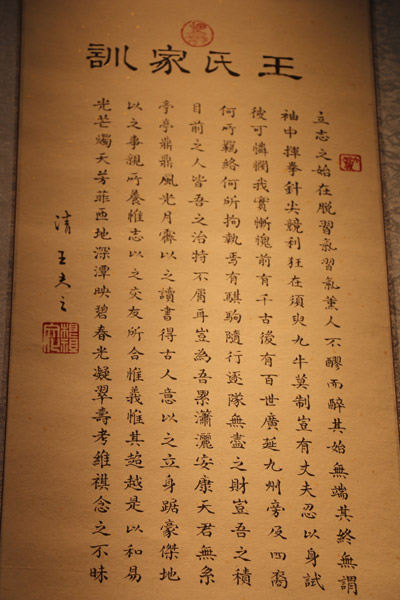 王氏家訓
立志之始在脫習氣習氣薰人不醪而醉其始無端其終無謂
袖中揮拳針尖競利狂在須臾九牛莫制豈有丈夫忍以身試
彼可憐憫我實慚愧前有千古後有百世廣延九州旁及四裔
何所羈絡何所拘執焉有騏駒隨行逐隊無盡之財豈吾之積
目前之人皆吾之治特不屑耳豈為吾累瀟灑安康天君無系
亭亭鼎鼎風光月霽以之讀書得古人意以之立身踞豪傑地
以之事親所養惟志以之交友所合惟義惟其超越是以和易
光芒燭天芳菲匝地深潭映碧春光凝翠壽考維祺念之不昧
清 王夫之